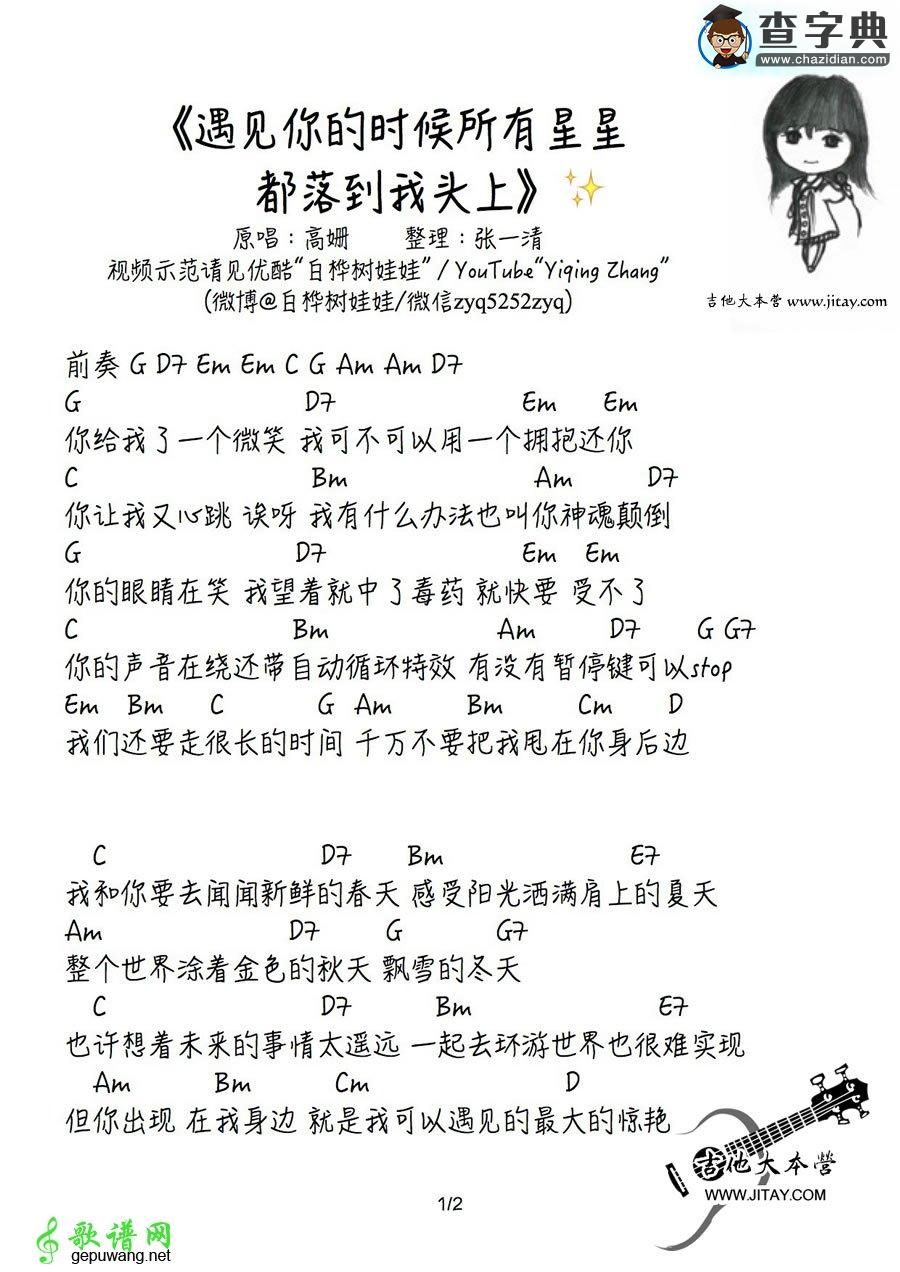 查字典
www.chazidian.com
《遇见你的时候所有星星
都落到我头上》✨
原唱：高姗 整理：张一清
视频示范请见优酷“白桦树娃娃” / YouTube“Yiqing Zhang”
(微博@白桦树娃娃/微信zyq5252zyq)
吉他大本营 www.jitay.com
前奏 G D7 Em Em C G Am Am D7
G D7 Em Em
你给我了一个微笑 我可不可以用一个拥抱还你
C Bm Am D7
你让我又心跳 诶呀 我有什么办法也叫你神魂颠倒
G D7 Em Em
你的眼睛在笑 我望着就中了毒药 就快要 受不了
C Bm Am D7 G G7
你的声音在绕还带自动循环特效 有没有暂停键可以stop
Em Bm C G Am Bm Cm D
我们还要走很长的时间 千万不要把我甩在你身后边
C D7 Bm E7
我和你要去闻闻新鲜的春天 感受阳光洒满肩上的夏天
Am D7 G G7
整个世界涂着金色的秋天 飘雪的冬天
C D7 Bm E7
也许想着未来的事情太遥远 一起去环游世界也很难实现
Am Bm Cm D
但你出现 在我身边 就是我可以遇见的最大的惊艳
吉他大本营
WWW.JITAY.COM
1/2
歌谱网
gepuwang.net